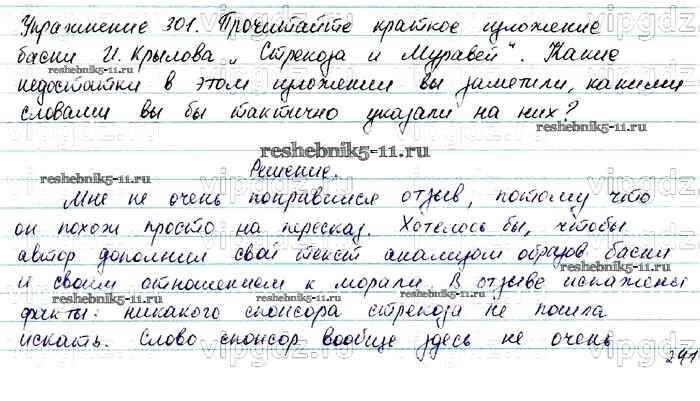 Упражнение 301. Прочитайте краткое изложение
басни И. Крылова „Стрекоза и Муравей“. Какие
недостатки в этом изложении вы заметили, какими
словами вы бы тактично указали на них?
reshebnik5-11.ru
Решение.
Мне не очень понравился отзыв, потому что
он похож просто на пересказ. Хотелось бы, чтобы
автор дополнил свой текст анализом образов басни
и своим отношением к морали. В отзыве искажены
факты: никакого спонсора стрекоза не пошла
искать. Слово спонсор вообще здесь не очень
241